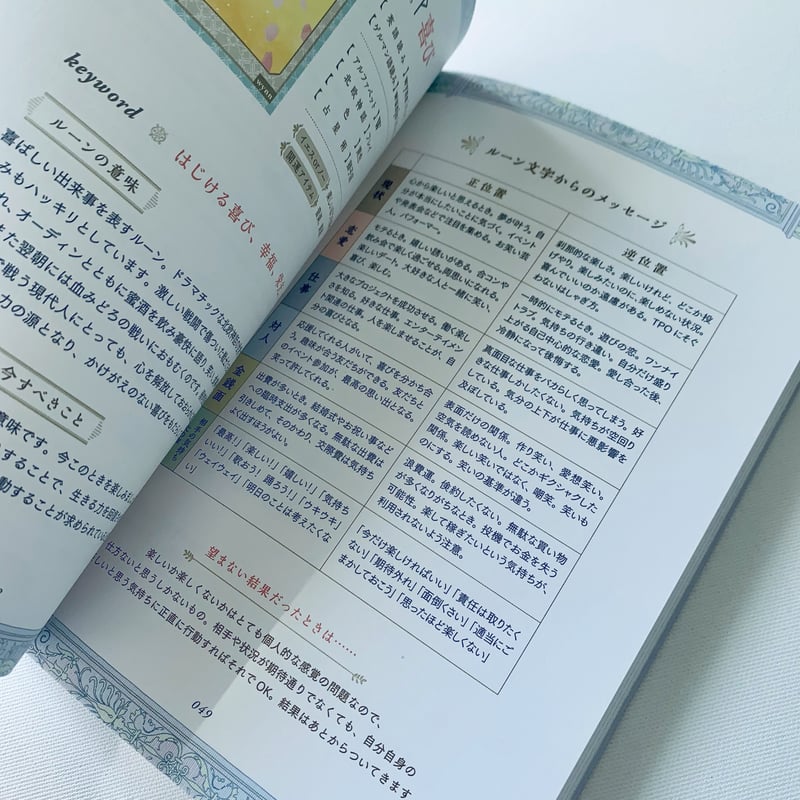 喜び
【英語読み】
【ゲルマン語読み】
【アルファベット】
【北欧神話】
【色】
【占星術】
wynn
keyword
はじける喜び、幸福、
ルーンの意味
喜ばしい出来事を表すルーン。ドラマチックな北欧神話
みもハッキリとしています。激しい戦闘で傷つい
れ、オーディンとともに蜜酒を飲み豪快に語り笑
また翌朝には血みどろの戦いにおもむくので
で戦う現代人にとっても、心を解放しておお
力の源となり、かけがえのない喜びをもた
今すべきこと
意味です。今このときを楽しみ
することで、生きる力を回
動することが求められてい
ルーン文字からのメッセージ
正位置
逆位置
現状
心から楽しいと思えるとき、夢が叶う。自
分が本当にしたいことに気づく。イベント
や発表会などで注目を集める。お笑い芸
人。パフォーマー。
刹那的な楽しさ。楽しいけれど、どこか投
げやり。楽しみたいのに、楽しめない状況。
喜んでいいのか遠慮がある。TPOにそぐ
わないはしゃぎ方。
恋愛
モテるとき、嬉しい誘いがある。合コンや
飲み会で楽しく過ごせる。両思いになれる。
楽しいデート。大好きな人と一緒に笑い、
喜び、楽しむ。
一時的にモテるとき。遊びの恋。ワンナイ
トラブ。気持ちの行き違い。自分だけ盛り
上がる自己中心的な恋愛。愛し合った後、
冷静になって後悔する。
仕事
大きなプロジェクトを成功させる。働く楽し
さを知る。好きな仕事。エンターテイメン
ト関連の仕事。人を楽しませることが、自
分の喜びとなる。
真面目な仕事をバカらしく思ってしまう。好
きな仕事しかしたくない。気持ちが空回り
している。気分の上下が仕事に悪影響を
及ぼしている。
対人
応援してくれる人がいて、喜びを分かち合
う。趣味が合う友だちができる。友だちと
のイベント参加が、最高の思い出となる。
笑って許してくれる。
表面だけの関係。作り笑い、愛想笑い。
空気を読めない人。どこかギクシャクした
関係。楽しい笑いではなく、嘲笑。笑いも
のにする。笑いの基準が違う。
金銭面
出費が多いとき。結婚式やお祝い事など
への臨時支出が多くなる。無駄な出費は
引きしめて、そのかわり、交際費は気持ち
よく出すほうがよい。
浪費癖。倹約したくない。無駄な買い物
が多くなりがちなとき。投機でお金を失う
可能性。楽して稼ぎたいという気持ちが、
利用されないよう注意。
相手の気持ち
「最高！」「楽しい！」「嬉しい！」「気持ち
いい！」「歌おう！踊ろう！」「ウキウキ」
「ウェイウェイ」「明日のことは考えたくな
「今だけ楽しければいい」「責任は取りたく
ない」「期待外れ」「面倒くさい」「適当にご
まかしておこう」「思ったほど楽しくない」
望まない結果だったときは……
楽しいか楽しくないかはとても個人的な感覚の問題なので、
仕方ないと思うしかないもの。相手や状況が期待通りでなくても、自分自身の
しいと思う気持ちに正直に行動すればそれでOK。結果はあとからついてきます
049